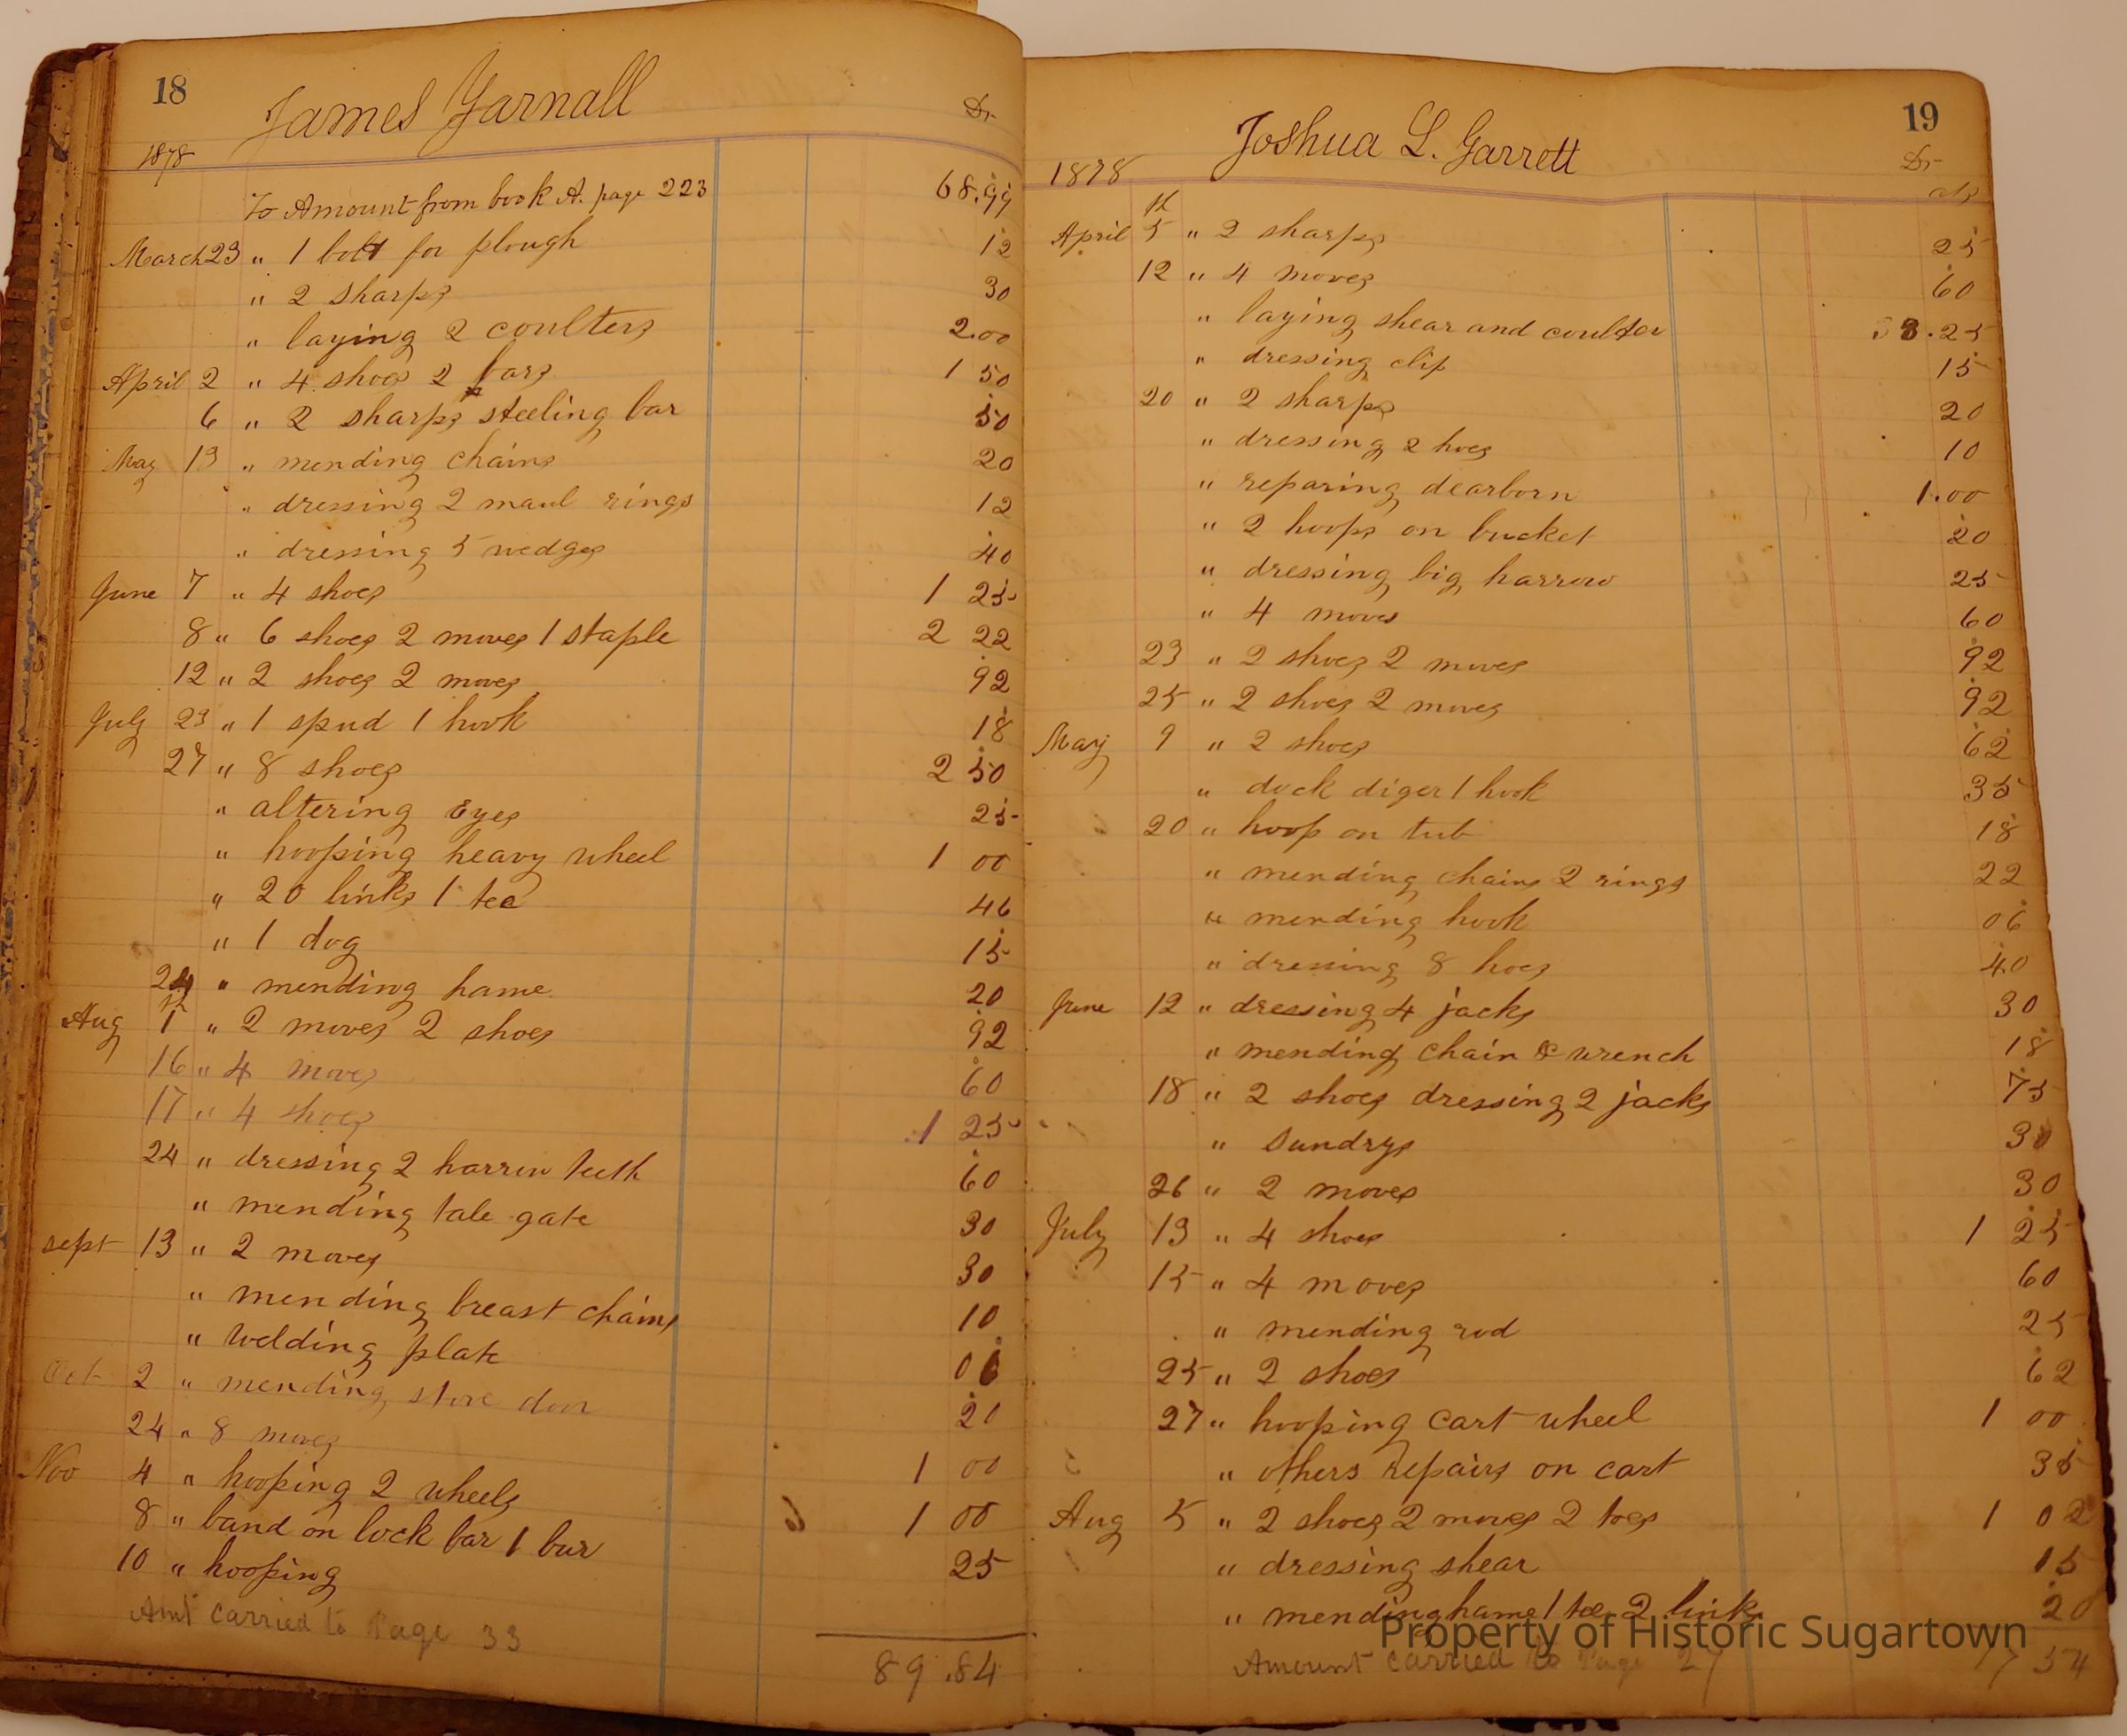 18
James Yarnall
Dr
1878
To Amount from book A. page 223 68.99
March 23 " 1 bolt for plough 12
" 2 sharps 30
" laying 2 coulters 2.00
April 2 " 4 shoes 2 bars 1 50
6 " 2 sharps steeling bar 50
May 13 " mending chains 20
" dressing 2 maul rings 12
" dressing 5 wedges 40
June 7 " 4 shoes 1 25
8 " 6 shoes 2 moves 1 staple 2 22
12 " 2 shoes 2 moves 92
July 23 " 1 spud 1 hook 18
27 " 8 shoes 2 50
" altering Eyes 25
" hooping heavy wheel 1 00
" 20 links 1 tee 46
" 1 dog 15
24 " mending hame 20
Aug 1st " 2 moves 2 shoes 92
16 " 4 moves 60
17 " 4 shoes 1 25
24 " dressing 2 harrow teeth 60
" mending tale gate 30
sept 13 " 2 moves 30
" mending breast chains 10
" welding plate 06
Oct 2 " mending stove door 20
24 " 8 moves
Nov 4 " hooping 2 wheels 1 00
8 " band on lock bar 1 bur 1 00
10 " hooping 25
Amt carried to Page 33
89.84
19
Joshua L. Garrett
1878
Dr
cts
April 5th " 2 sharps 25
12 " 4 moves 60
" laying shear and coulter 3.25
" dressing clip 15
20 " 2 sharps 20
" dressing 2 hoes 10
" reparing dearborn 1.00
" 2 hoops on bucket 20
" dressing big harrow 25
" 4 moves 60
23 " 2 shoes 2 moves 92
25 " 2 shoes 2 moves 92
May 9 " 2 shoes 62
" dock diger 1 hook 35
20 " hoop on tub 18
" mending chains 2 rings 22
" mending hook 06
" dressing 8 hoes 40
June 12 " dressing 4 jacks 30
" mending chain & wrench 18
18 " 2 shoes dressing 2 jacks 75
" sundrys 30
26 " 2 moves 30
July 13 " 4 shoes 1 25
15 " 4 moves 60
" mending rod 25
25 " 2 shoes 62
27 " hooping cart wheel 1 00
" others repairs on cart 35
Aug 5 " 2 shoes 2 moves 2 toes 1 02
" dressing shear 15
" mending hame 1 tee 2 links 20
Property of Historic Sugartown
Amount carried to Page 27 17 54